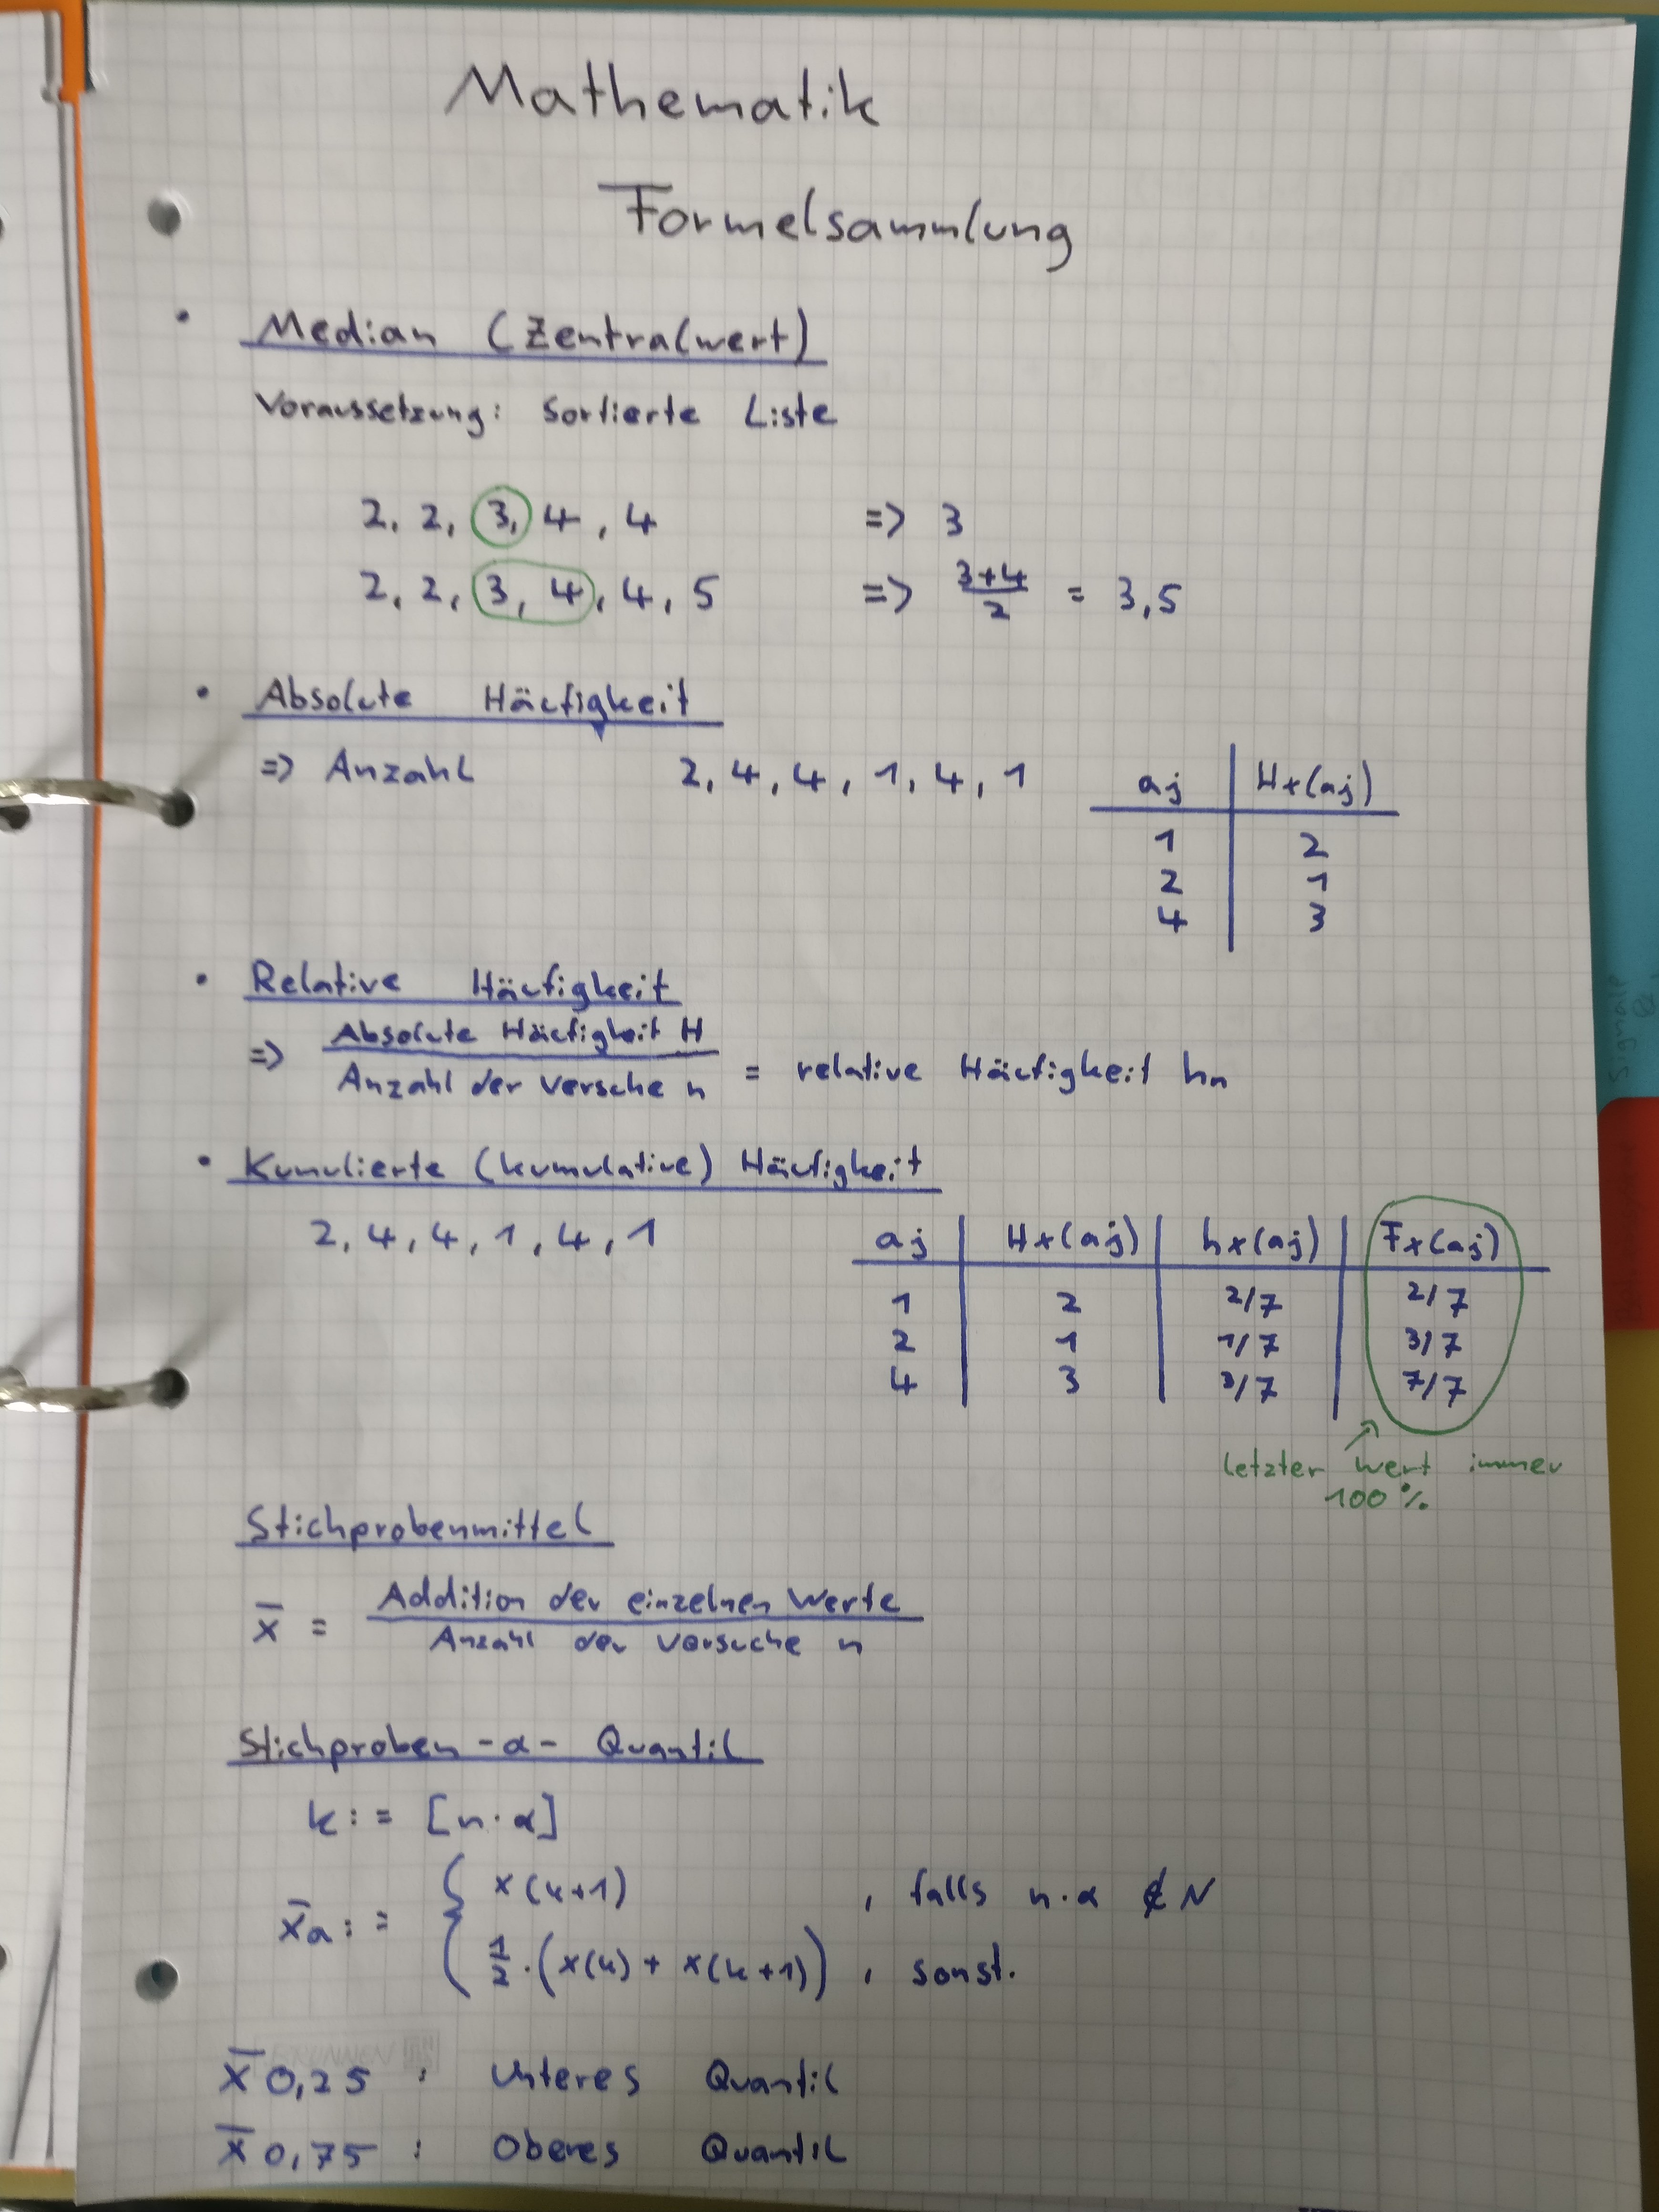 Mathematik
Formelsammlung
• Median (Zentralwert)
Voraussetzung: Sortierte Liste
2, 2, 3, 4, 4 => 3
2, 2, 3, 4, 4, 5 => 3+4/2 = 3,5
• Absolute Häufigkeit
=> Anzahl 2, 4, 4, 1, 4, 1
aj | Hx(aj)
1 | 2
2 | 1
4 | 3
• Relative Häufigkeit
=> Absolute Häufigkeit H / Anzahl der Versche n = relative Häufigkeit hn
• Kumulierte (kumulative) Häufigkeit
2, 4, 4, 1, 4, 1
aj | Hx(aj) | hx(aj) | Fx(aj)
1 | 2 | 2/7 | 2/7
2 | 1 | 1/7 | 3/7
4 | 3 | 3/7 | 7/7
letzter Wert immer
100%
Stichprobenmittel
x̄ = Addition der einzelnen Werte / Anzahl der Versuche n
Stichproben -α- Quantil
k := [n·α]
x̄α := { x(k+1) , falls n·α ∉ N
1/2·(x(k) + x(k+1)) , sonst.
x̄ 0,25 : Unteres Quantil
x̄ 0,75 : Oberes Quantil
Signale